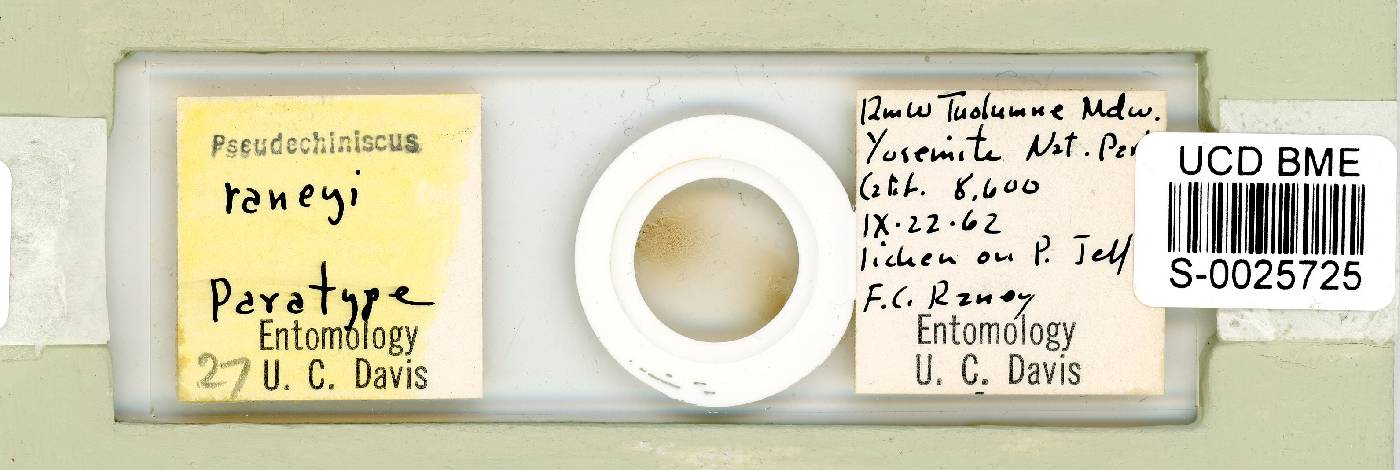 Pseudechiniscus
raneyi
Paratype
Entomology
27 U. C. Davis
12mW Tuolumne Mdw.
Yosemite Nat. Par
Calif. 8,600
IX.22.62
lichen on P. Jeff
F.C. Raney
Entomology
U. C. Davis
UCD BME
S-0025725